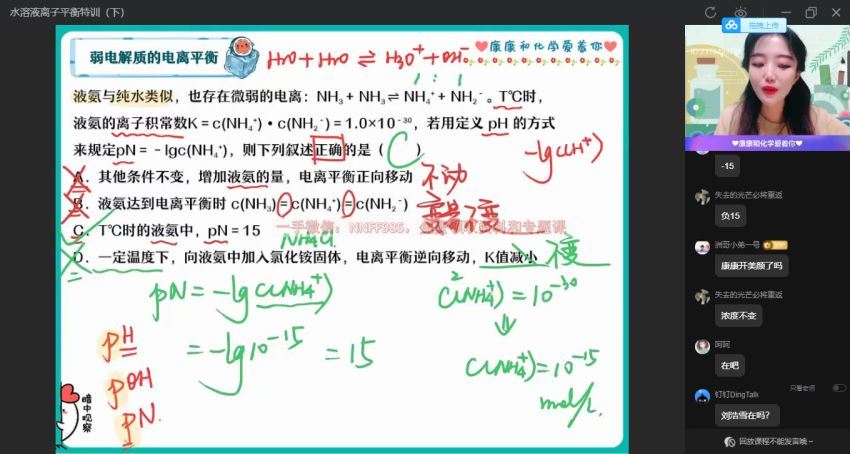 水溶液离子平衡特训（下）
拖拽上传
弱电解质的电离平衡
H₂O + H₂O ⇌ H₃O⁺ + OH⁻
1 : 1
❤康康和化学爱着你❤
液氨与纯水类似，也存在微弱的电离：NH₃ + NH₃ ⇌ NH₄⁺ + NH₂⁻。T℃时，
液氨的离子积常数K = c(NH₄⁺)•c(NH₂⁻) = 1.0×10⁻³⁰，若用定义 pH 的方式
来规定pN = －lgc(NH₄⁺)，则下列叙述正确的是（ C ）
-lgc(H⁺)
A．其他条件不变，增加液氨的量，电离平衡正向移动 不动
B．液氨达到电离平衡时 c(NH₃)=c(NH₄⁺)=c(NH₂⁻)
C．T℃时的液氨中，pN = 15
一手微信：NNFF985，
NH₄Cl
D．一定温度下，向液氨中加入氯化铵固体，电离平衡逆向移动，K值减小 不变
pN = -lg c(NH₄⁺)
= -lg10⁻¹⁵ = 15
c²(NH₄⁺) = 10⁻³⁰
⇓
c(NH₄⁺) = 10⁻¹⁵
mol/L
pH
pOH
pN.
暗中观察
❤康康和化学爱着你❤
-15
失去的光芒必将重返
负15
洲哥小弟一号
康康开美颜了吗
失去的光芒必将重返
浓度不变
阿阿
在吧
只看老师
钉钉DingTalk
刘浩雪在吗?
回放课程不能发言噢~